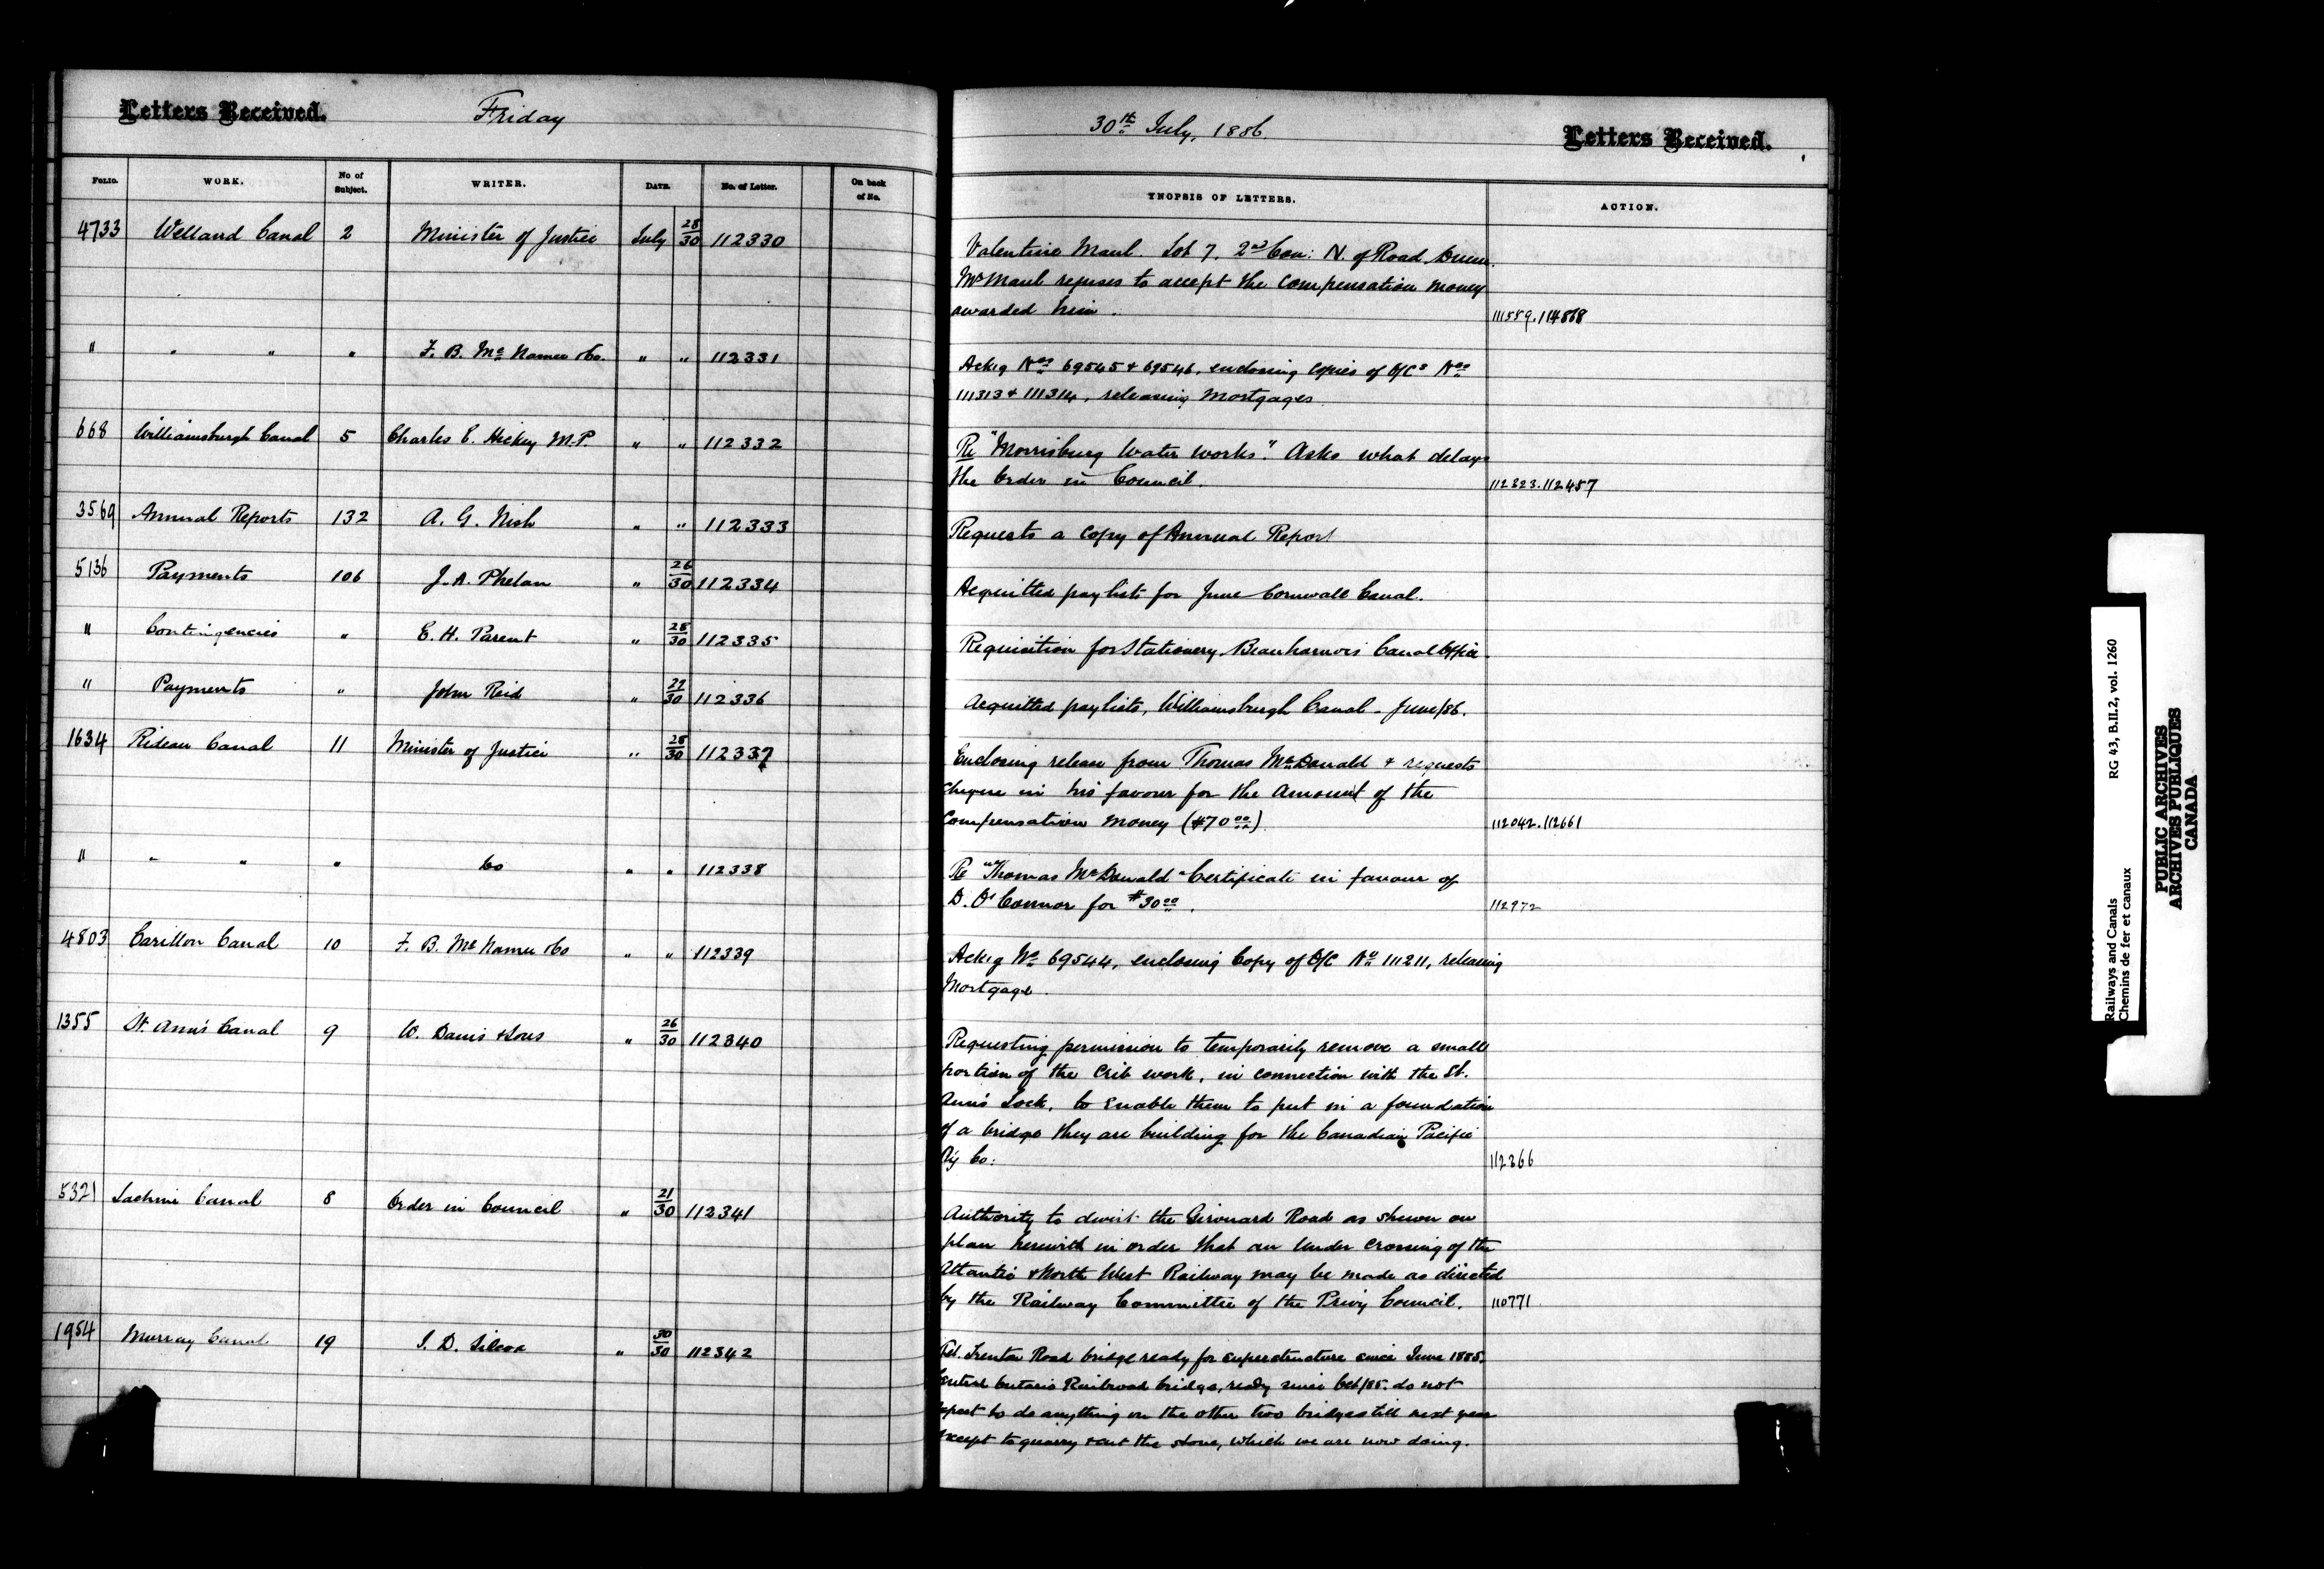 Letters Received. Friday
30th July, 1886. Letters Received.
FOLIO. WORK. No of Subject. WRITER. DATE. No. of Letter. On back of No.
YNOPSIS OF LETTERS. ACTION.
4733 Welland Canal 2 Minister of Justice July 28/30 112330
Valentine Maul. Lot 7, 2nd Con: N. of Road
Mr Maul refuses to accept the compensation money
awarded him. 111589. 114868
" " " " F. B. Mc Namee & Co. " " 112331
Ackg Nos 69545 & 69546, enclosing copies of O/Cs Nos
111313 & 111314, releasing Mortgages
668 Williamsburgh Canal 5 Charles E. Hickey M.P. " " 112332
Re "Morrisburg Water Works." Asks what delays
the Order in Council. 112323. 112457
3569 Annual Reports 132 A. G. Nish " " 112333
Requests a copy of Annual Report
5136 Payments 106 J. A. Phelan " 26/30 112334
Acquitted paylists for June Cornwall Canal.
" Contingencies " E. H. Parent " 28/30 112335
Requisition for Stationery. Beauharnois Canal Office.
" Payments " John Reid " 29/30 112336
Acquitted paylists, Williamsburgh Canal - June/86.
1634 Rideau Canal 11 Minister of Justice " 28/30 112337
Enclosing release from Thomas McDonald & requests
cheque in his favour for the amount of the
Compensation Money ($70 00) 112042. 112661
" " " " Do " " 112338
Re "Thomas McDonald" Certificate in favour of
D. O'Connor for $30 00. 112972
4803 Carillon Canal 10 F. B. Mc Namee & Co " " 112339
Ackg No 69544, enclosing Copy of O/C No 111211, releasing
Mortgage.
1355 St. Ann's Canal 9 W. Davis & Sons " 26/30 112340
Requesting permission to temporarily remove a small
portion of the Crib work, in connection with the St.
Ann's Lock, to enable them to put in a foundation
of a bridge they are building for the Canadian Pacific
Ry Co: 112366
5321 Lachine Canal 8 Order in Council " 21/30 112341
Authority to divert the Girouard Road as shewn on
plan herewith in order that an under crossing of the
Atlantic & North West Railway may be made as directed
by the Railway Committee of the Privy Council. 110771
1954 Murray Canal 19 J. D. Silcox " 30/30 112342
Tel. Trenton Road bridge ready for superstructure since June 1885.
Central Ontario Railroad bridge, ready since Oct/85. do not
expect to do anything on the other two bridges till next year
except to quarry & cut the stone, which we are now doing.
Railways and Canals RG 43, B.II.2, vol. 1260
Chemins de fer et canaux
PUBLIC ARCHIVES
ARCHIVES PUBLIQUES
CANADA